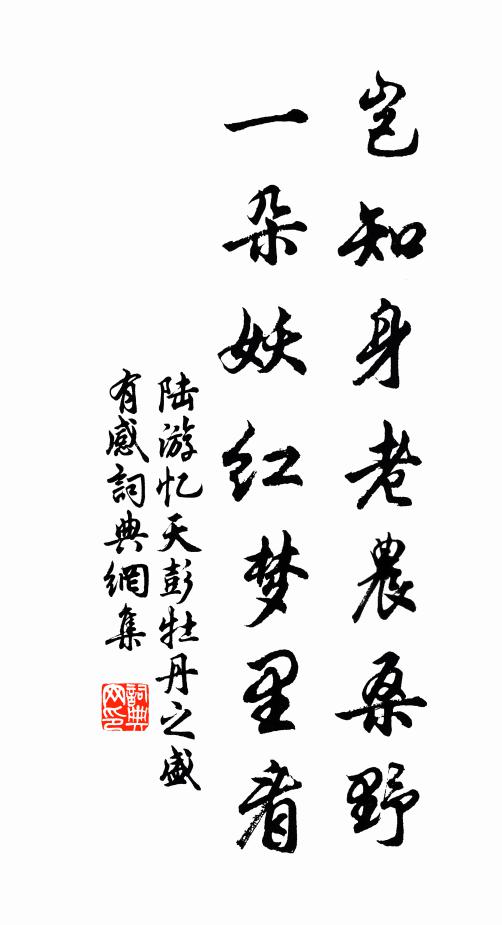 岂知身老農桑野
一朵妖红梦里看
陆游忆天彭牡丹之盛
有感詞典網集
詞典
网印